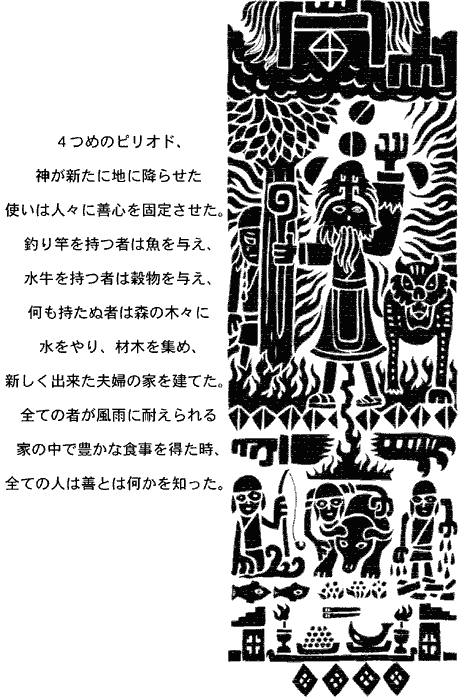 ４つめのピリオド、
神が新たに地に降らせた
使いは人々に善心を固定させた。
釣り竿を持つ者は魚を与え、
水牛を持つ者は穀物を与え、
何も持たぬ者は森の木々に
水をやり、材木を集め、
新しく出来た夫婦の家を建てた。
全ての者が風雨に耐えられる
家の中で豊かな食事を得た時、
全ての人は善とは何かを知った。